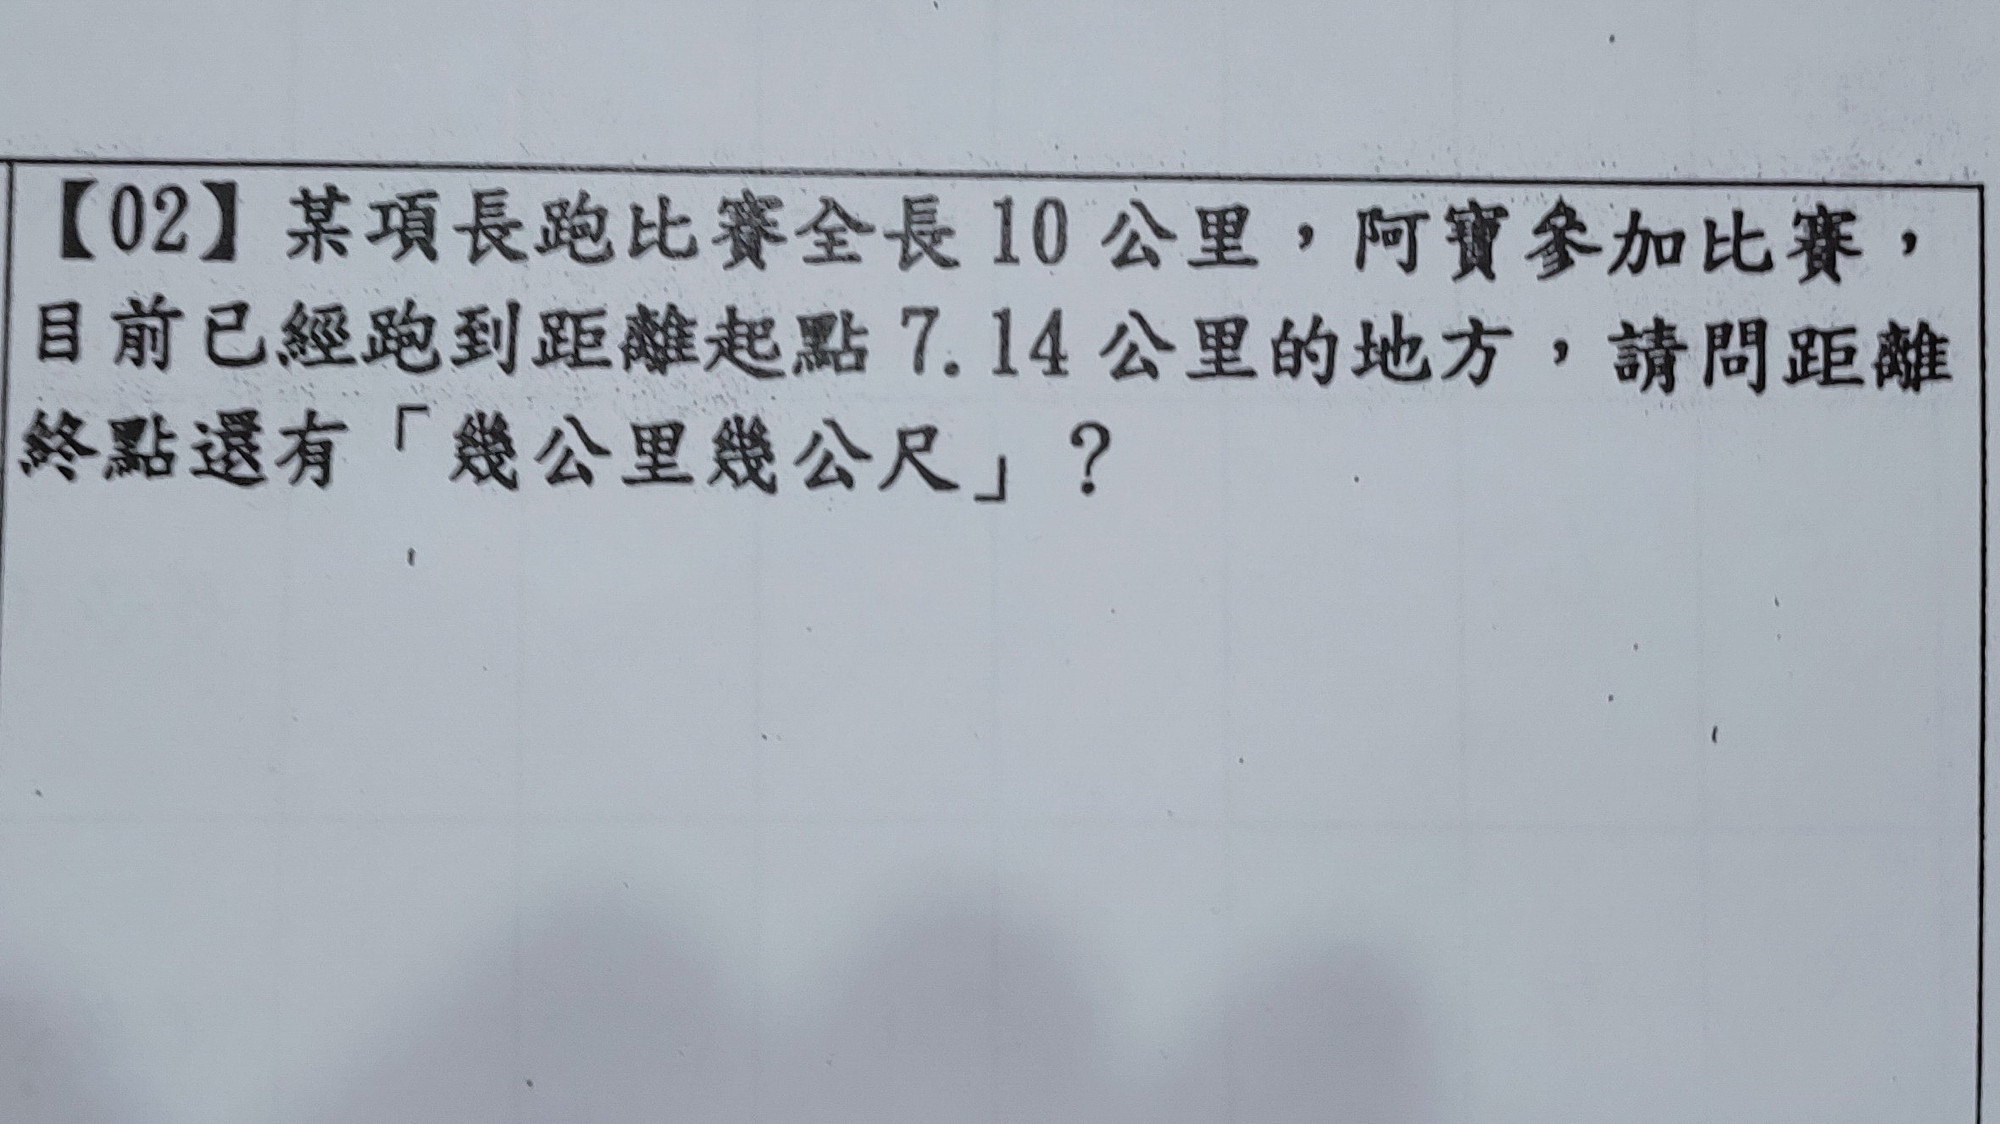 【02】某項長跑比賽全長10公里，阿寶參加比賽，
目前已經跑到距離起點7.14公里的地方，請問距離
終點還有「幾公里幾公尺」？